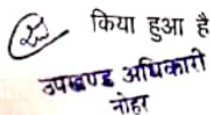 किया हुआ है
उपखण्ड अधिकारी
नोहर